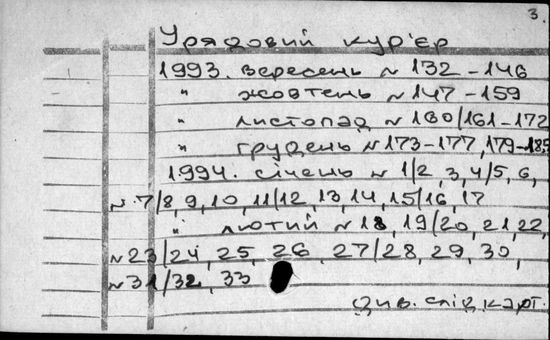 3.
Урядовий кур'єр
1993. вересень № 132-146
" жовтень № 147-159
" листопад № 160/161-172
" грудень № 173-177, 179-185
1994. січень № 1/2, 3, 4/5, 6,
№ 7/8, 9, 10, 11/12, 13, 14, 15/16, 17
" лютий № 18, 19/20, 21, 22,
№ 23/24, 25, 26, 27/28, 29, 30,
№ 31/32, 33
див. слід. карт.